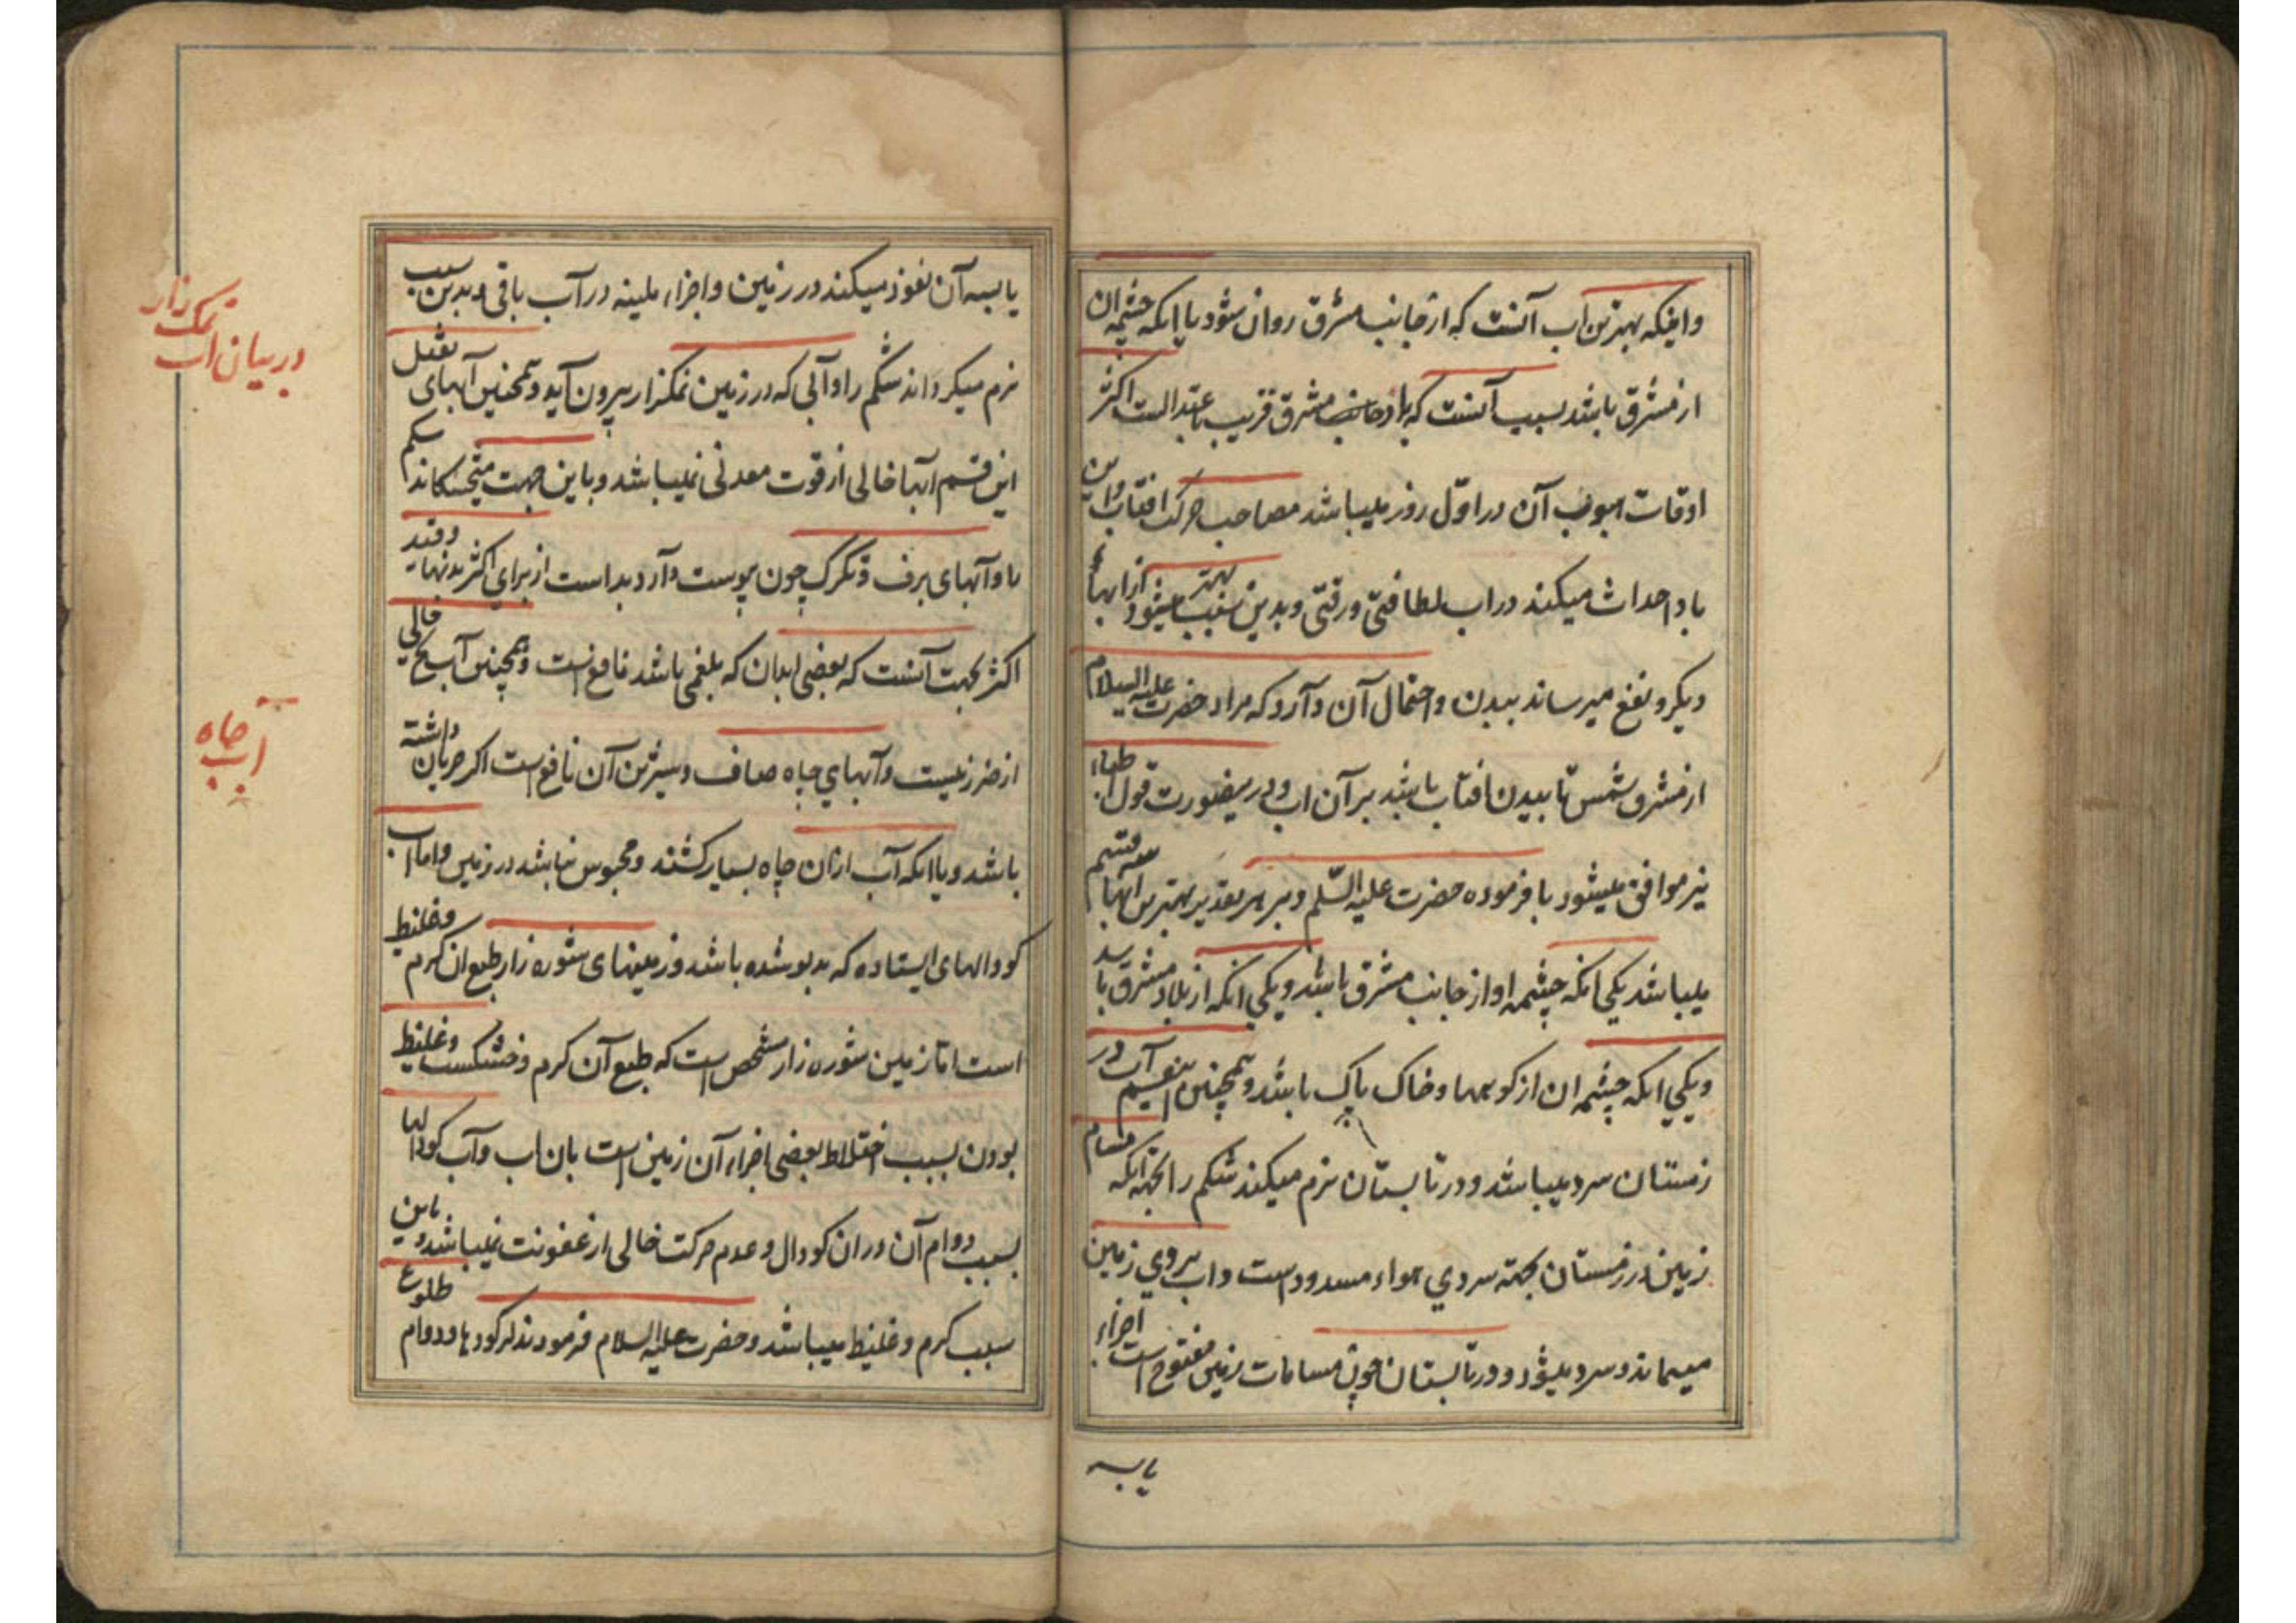 واینکه بهترین اب آنست که از جانب مشرق روان شود یا انکه چشمه ان
از مشرق باشد بسبب آنست که باد جانب مشرق قریب باعتدالست اکثر
اوقات هبوب آن در اوّل روز میباشد مصاحب حرکت افتاب و این
باد احداث میکند در اب لطافتی و رقتی و بدین سبب بهتر میشود از ابهای
دیکر و نفع میرساند ببدن و احتمال آن دارد که مراد حضرت علیه السلام
از مشرق شمس تابیدن افتاب باشد بر آن اب و درینصورت قول اطباء
نیز موافق میشود با فرموده حضرت علیه السّلم و بر هر تقدیر بهترین ابها سه قسم
میباشد یکی انکه چشمه او از جانب مشرق باشد و یکی انکه از بلاد مشرق باشد
و یکی انکه چشمه ان از کوهها و خاک پاک باشد و همچنین این قسم آب در
زمستان سرد میباشد و در تابستان نرم میکند شکم را بجهة انکه مسام
زمین در زمستان بجهة سردی هواء مسدود است و اب بر روی زمین
میماند و سرد میشود و در تابستان چون مسامات زمین مفتوح است اجزاء
یابسه
یابسه آن نفوذ میکند در زمین و اجزاء ملینه در آب باقی و بدین سبب
نرم میکرداند شکم را و آبی که در زمین نمکزار بیرون آید و همچنین آبهای ثقیل
این قسم ابها خالی از قوت معدنی نمیباشد و باین جهت میخسکاند شکم
را و آبهای برف و تکرک چون پوست دارد بد است از برای اکثر بدنها و قید
اکثر بجهت آنست که بعضی ابدان که بلغمی باشد نافع است و همچنین آب یخ خالی
از ضرر نیست و آبهای چاه صاف و شیرین آن نافع است اکر جریان داشته
باشد و یا انکه آب از ان چاه بسیار کشند و محبوس نباشد در زمین و اما اب
کودالهای ایستاده که بدبو شده باشد و زمینهای شوره زار طبع ان کرم و غلیظ
است اما زمین شوره زار مشخص است که طبع آن کرم و خشکست و غلیظ
بودن بسبب اختلاط بعضی اجزاء آن زمین است بان اب و آب کودالها
بسبب دوام آن در ان کودال و عدم حرکت خالی از عفونت نمیباشد و باین
سبب کرم و غلیظ میباشد و حضرت علیه السلام فرمودند در کودها و دوام طلوع
در بیان اب نمک زار
آب چاه